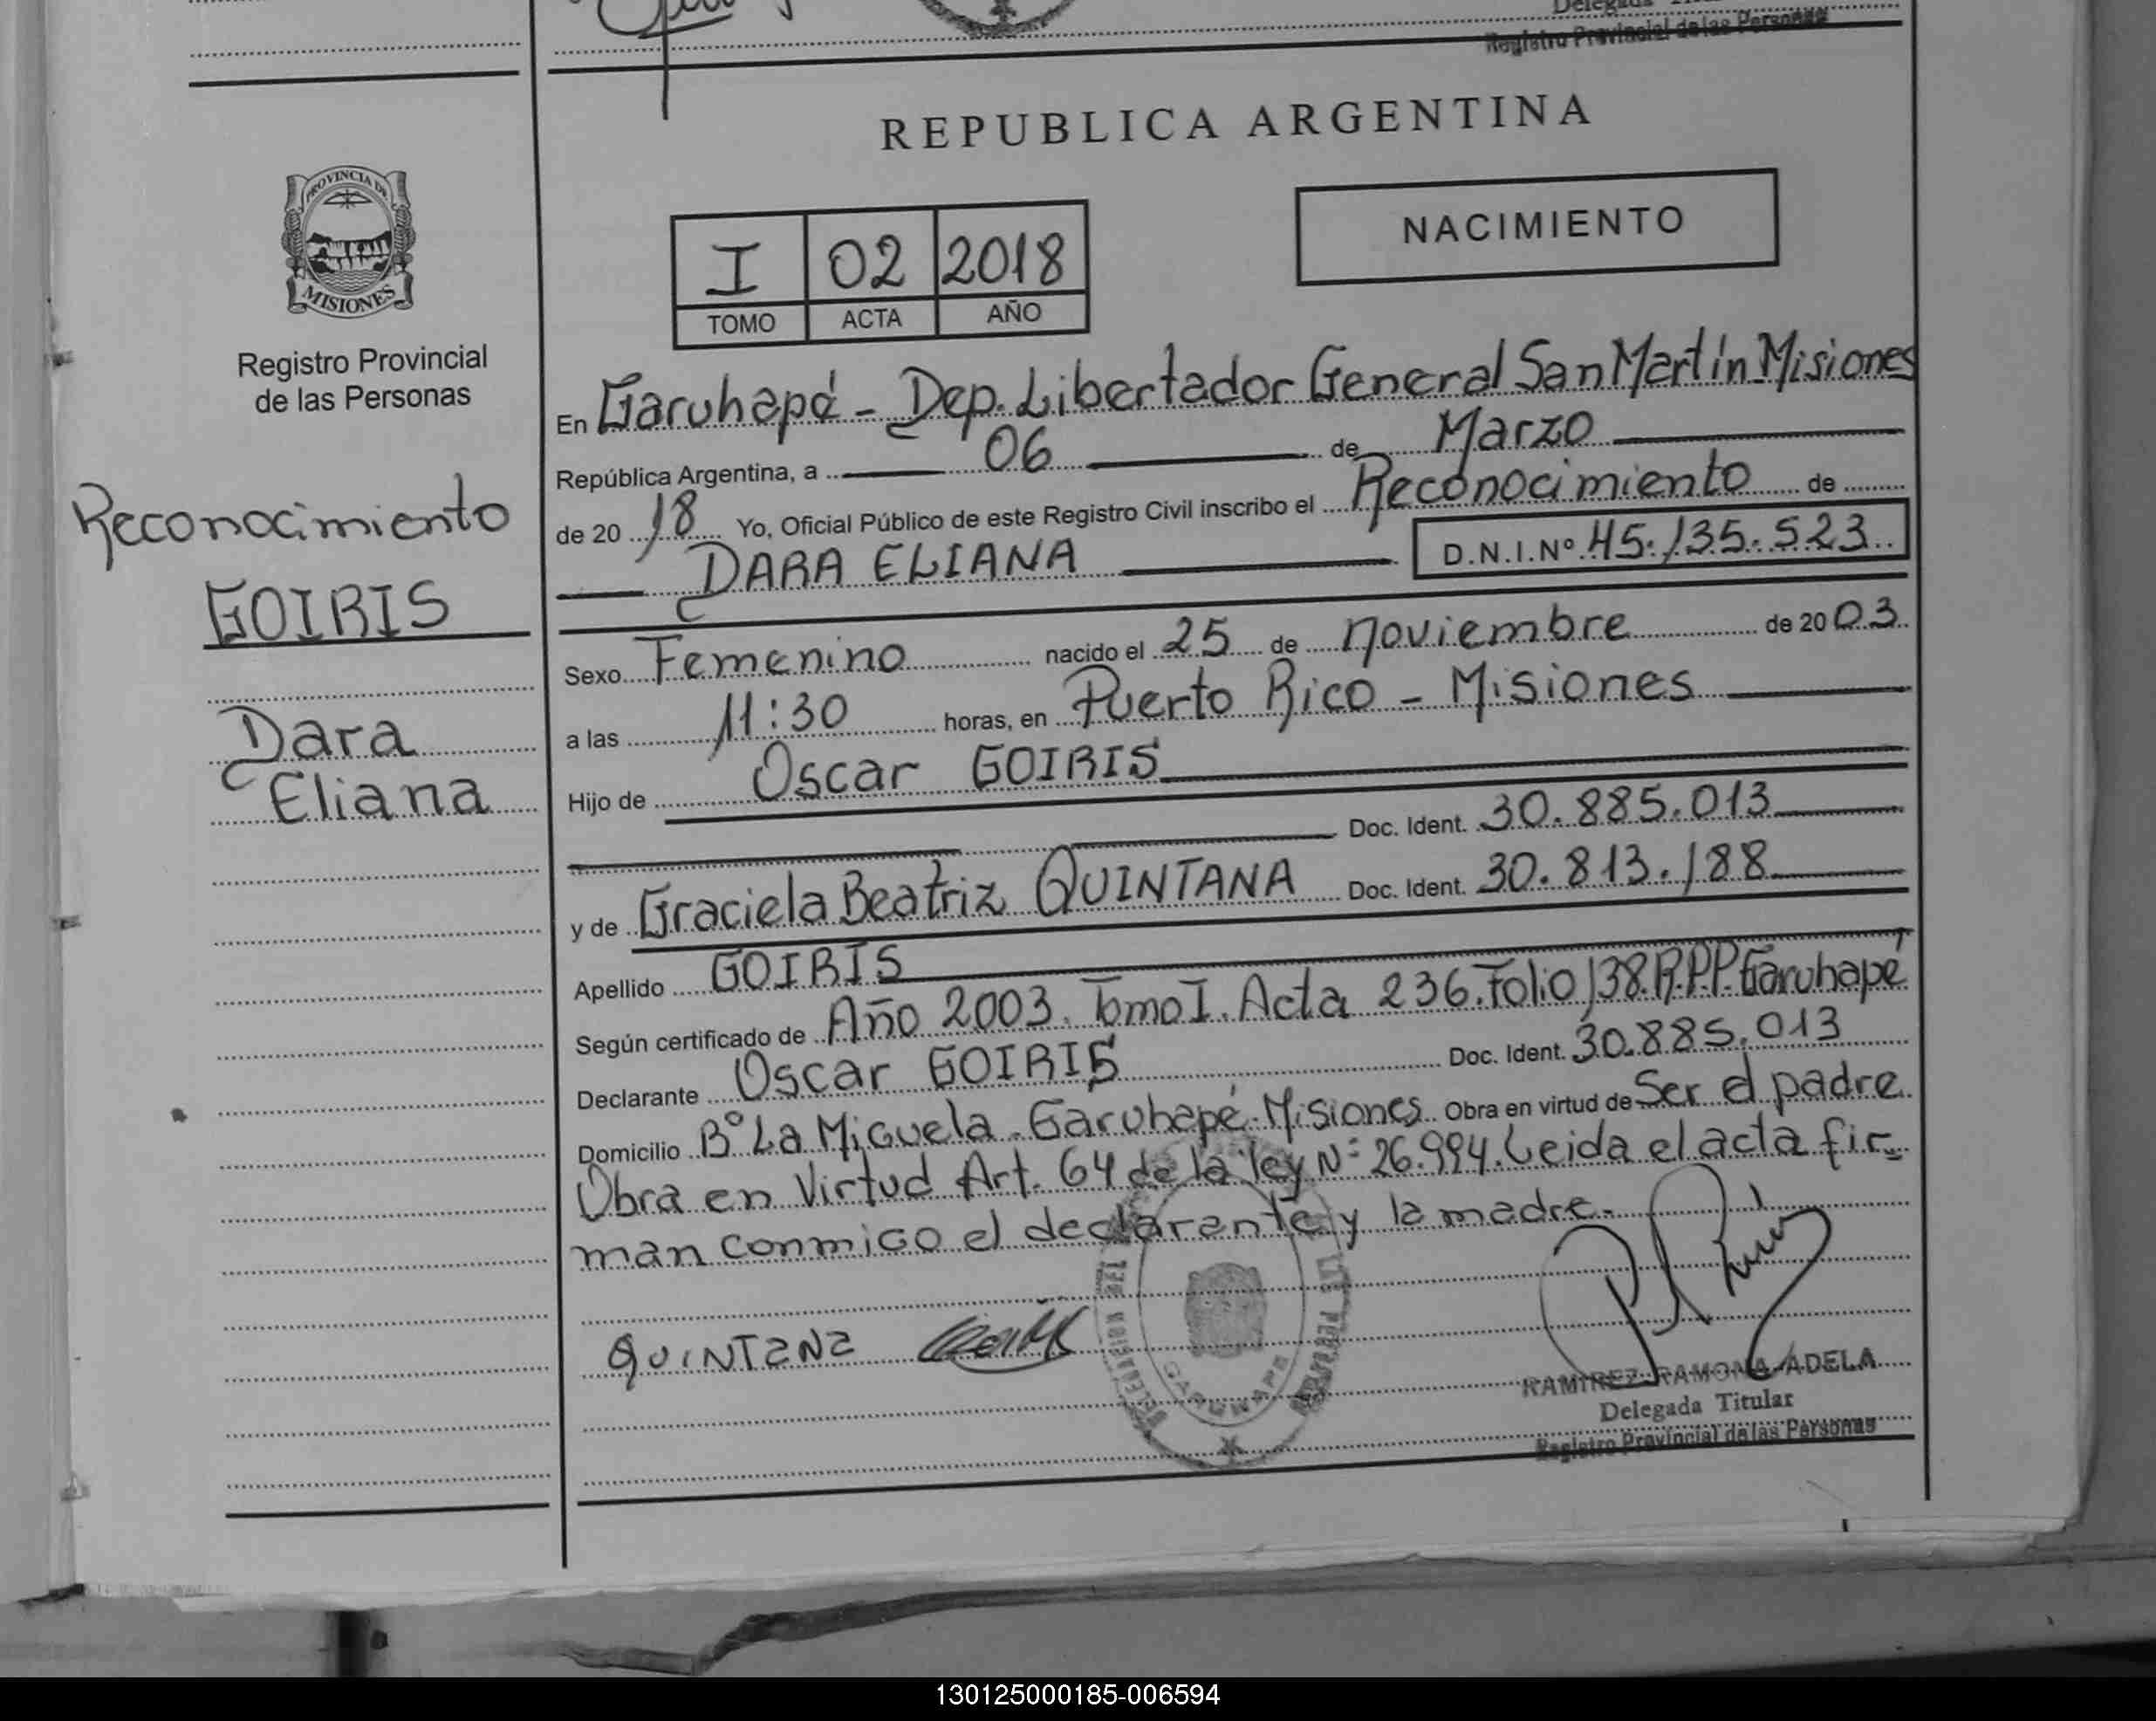 Delegada
Registro Provincial de las Personas
REPUBLICA ARGENTINA
PROVINCIA DE
MISIONES
Registro Provincial
de las Personas
NACIMIENTO
I 02 2018
TOMO ACTA AÑO
Reconocimiento
GOIRIS
Dara
Eliana
En Garuhapé - Dep. Libertador General San Martín Misiones
República Argentina, a 06 de Marzo
de 20 18 Yo, Oficial Público de este Registro Civil inscribo el Reconocimiento de
DARA ELIANA D.N.I.Nº 45.135.523
Sexo Femenino nacido el 25 de noviembre de 20 03
a las 11:30 horas, en Puerto Rico - Misiones
Hijo de Oscar GOIRIS
Doc. Ident. 30.885.013
y de Graciela Beatriz QUINTANA Doc. Ident. 30.813.188
Apellido GOIRIS
Según certificado de Año 2003. Tomo I. Acta 236. Folio 138. R.P.P. Garuhapé
Declarante Oscar GOIRIS Doc. Ident. 30.885.013
Domicilio Bº La Miguela - Garuhapé - Misiones Obra en virtud de Ser el padre
Obra en Virtud Art. 64 de la ley Nº 26.994. Leida el acta fir-
man conmigo el declarante y la madre.
QUINTANA
GARUHAPE
RAMIREZ RAMONA ADELA
Delegada Titular
Registro Provincial de las Personas
130125000185-006594